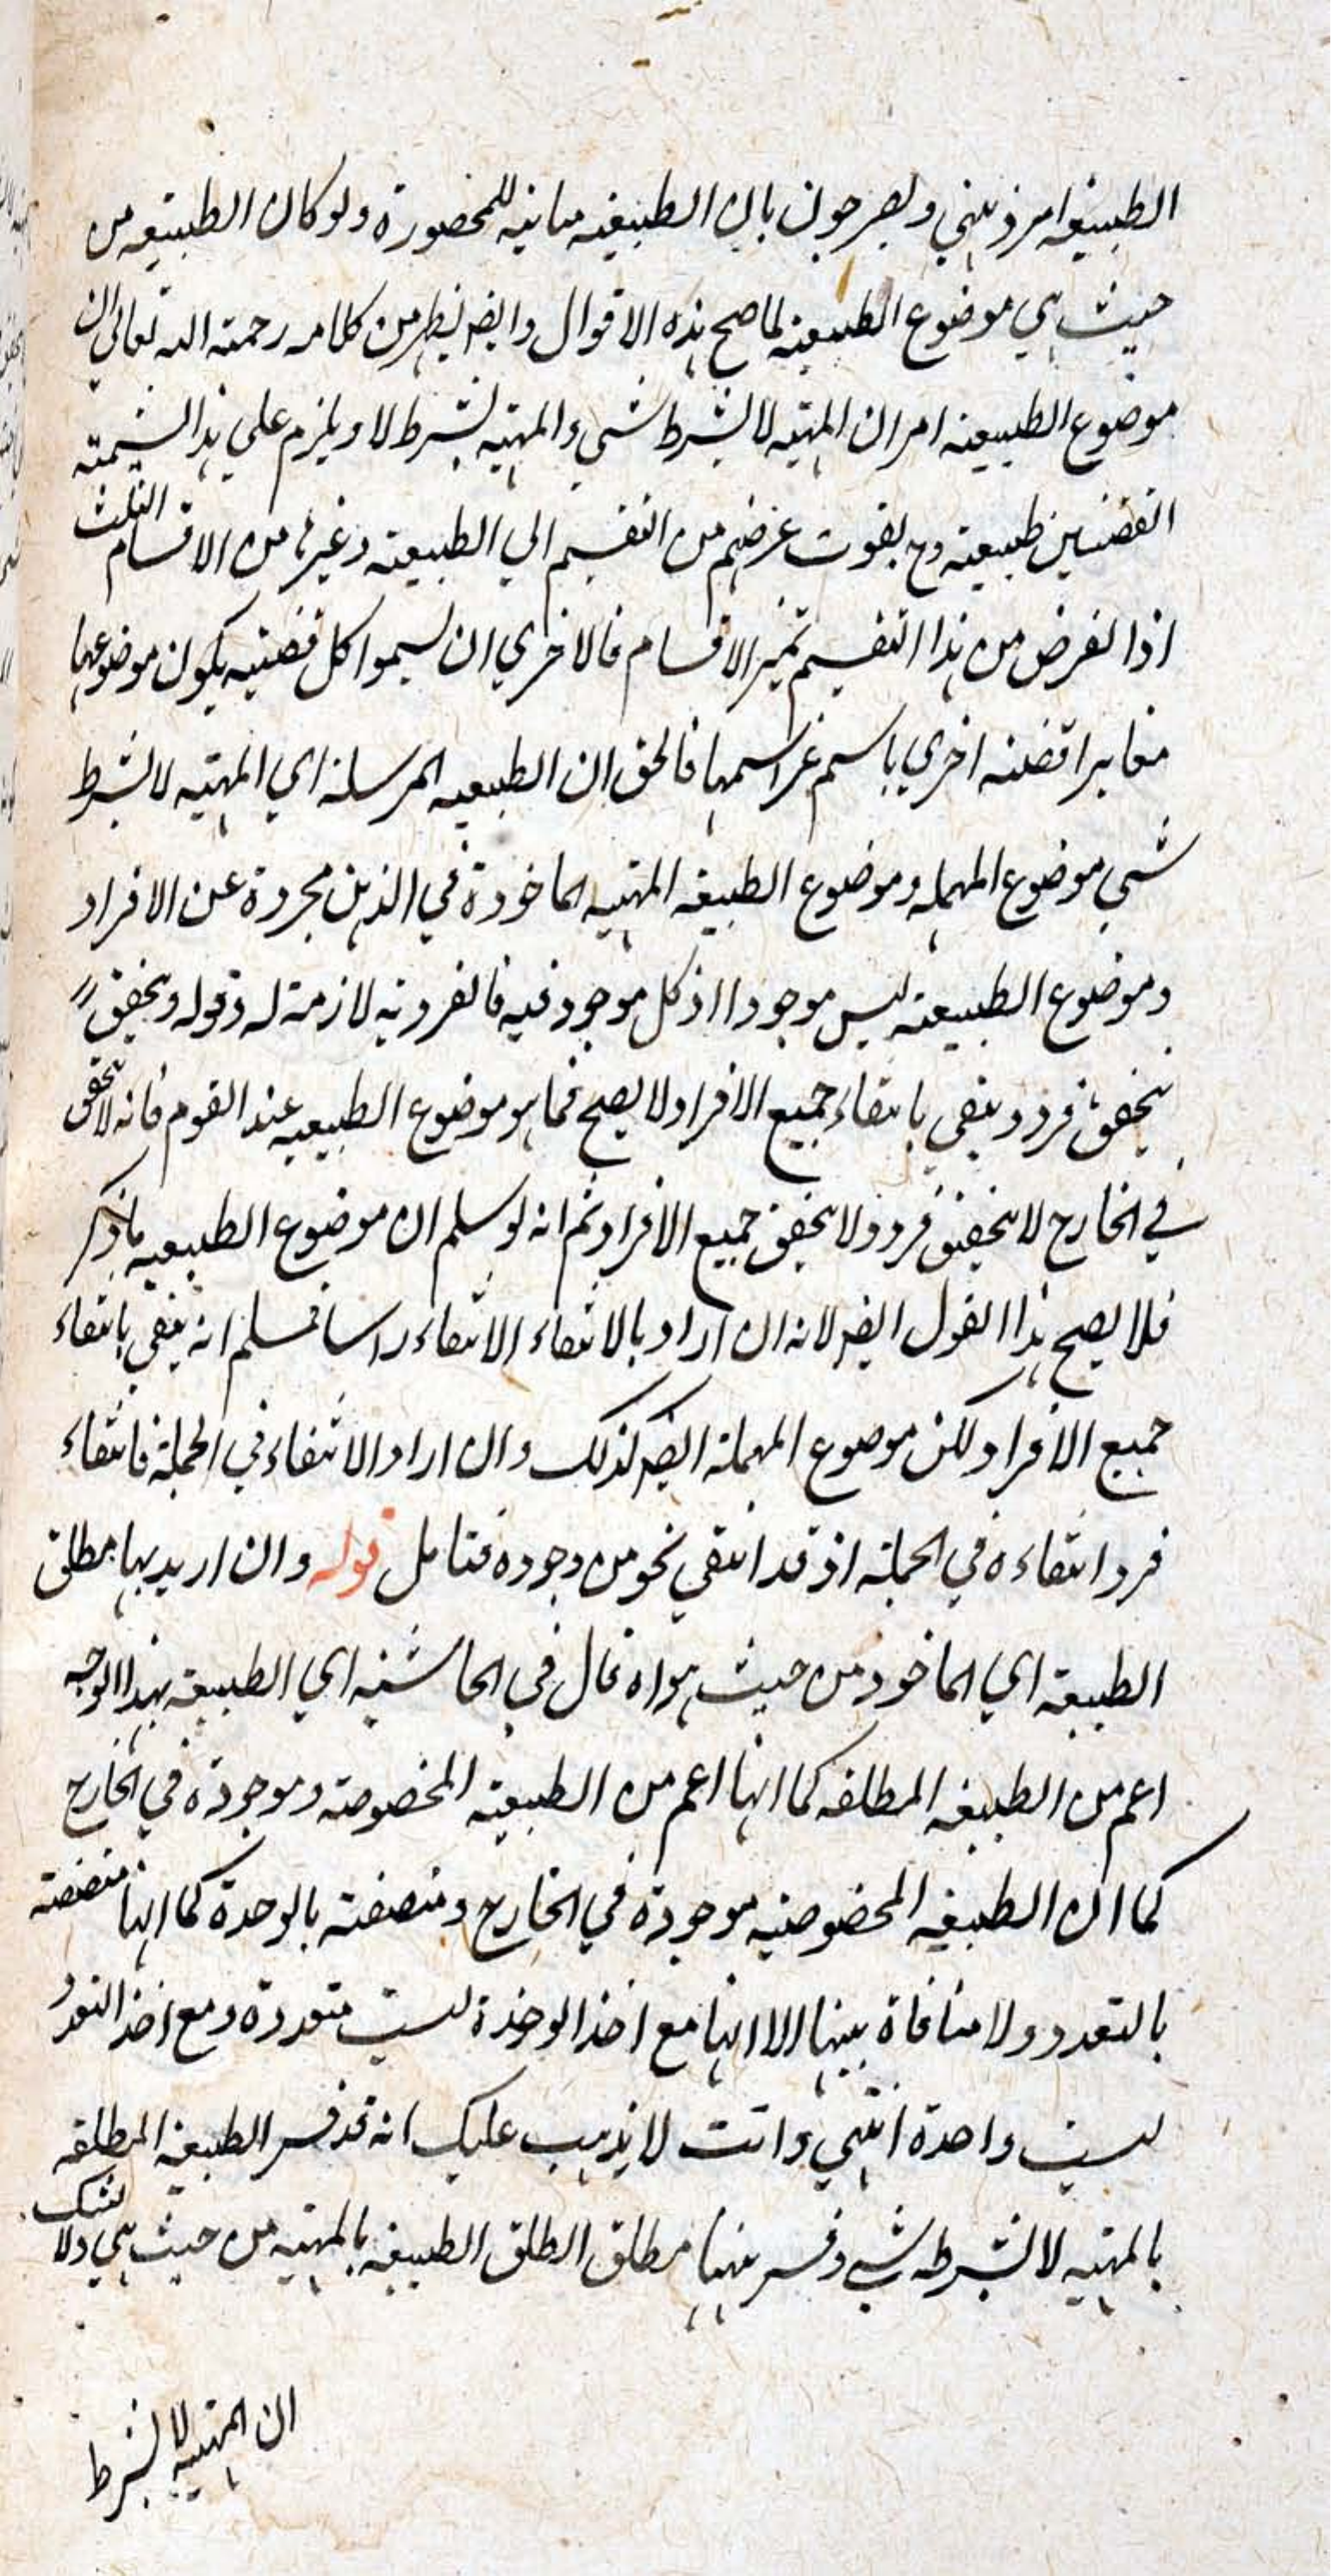 الطبيعة امر ذهني ويصرحون بان الطبيعيه مباينه للمحصورة ولو كان الطبيعه من
حيث هي موضوع الطبيعية لما صح هذه الاقوال وايضا يظهر من كلامه رحمة الله تعالي ان
موضوع الطبيعية امران المهيه لا بشرط شيء والمهيه بشرط لا ويلزم علي هذا تسمية
القضيتين طبيعية وح يفوت غرضهم من التقسيم الي الطبيعية وغيرها من الاقسام الثلث
اذ الغرض من هذا التقسيم تميز الاقسام فالاحري ان يسموا كل قضيه يكون موضوعها
مغايرا لقضية اخري باسم غير اسمها فالحق ان الطبيعيه المرسلة اي المهيه لا بشرط
شي موضوع المهمله وموضوع الطبيعة المهيه الماخوذة في الذهن مجردة عن الافراد
وموضوع الطبيعية ليس موجودا اذ كل موجود فيه فالفردية لازمة له وقوله ويتحقق
بتحقق فرد وينتفي بانتفاء جميع الافراد لا يصح فيما هو موضوع الطبيعيه عند القوم فانه لا يتحقق
في الخارج لا بتحقق فرد ولا بتحقق جميع الافراد ثم انه لو سلم ان موضوع الطبيعيه ما ذكر
فلا يصح هذا القول ايضا لانه ان اراد بالانتفاء الانتفاء راسا فمسلم انه ينتفي بانتفاء
جميع الافراد لكن موضوع المهملة ايضا كذلك وان اراد الانتفاء في الجملة فانتفاء
فرد انتفاءه في الجملة اذ قد انتفي نحو من وجوده فتامل قوله وان اريد بها مطلق
الطبيعة اي الماخوذ من حيث هو اه قال في الحاشية اي الطبيعة بهذا الوجه
اعم من الطبيعة المطلقه كما انها اعم من الطبيعة المخصوصة وموجودة في الخارج
كما ان الطبيعه المخصوصه موجودة في الخارج ومتصفة بالوحدة كما انها متصفة
بالتعدد ولا منافاة بينها الا انها مع اخذ الوحدة ليست متعددة ومع اخذ التعدد
ليست واحدة انتهي وانت لا يذهب عليك انه قد فسر الطبيعة المطلقه
بالمهيه لا بشرط شي وفسر ههنا مطلق الطبيعة بالمهيه من حيث هي ولا شك
ان المهيه لا بشرط